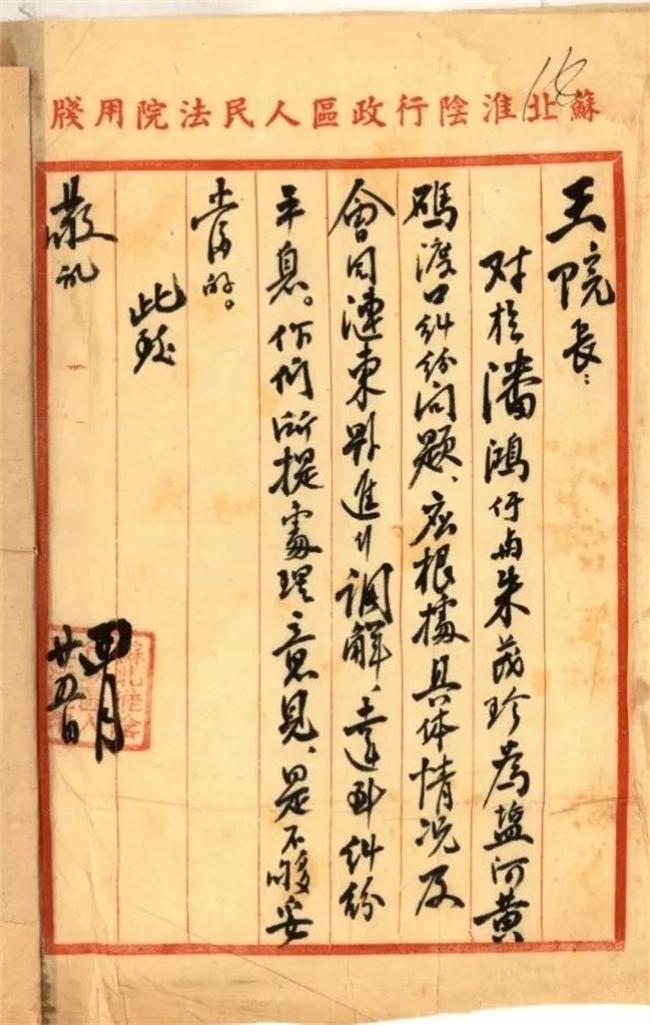 蘇北淮陰行政區人民法院用牋
王院長：
对於潘鴻與朱茂珍為盐河黄
碼渡口糾纷问题、应根據具体情况及
會同漣東县進行調解、達到糾纷
平息。你们所提處理意見、是不够妥
当的。
此致
敬礼
四月
廿五日